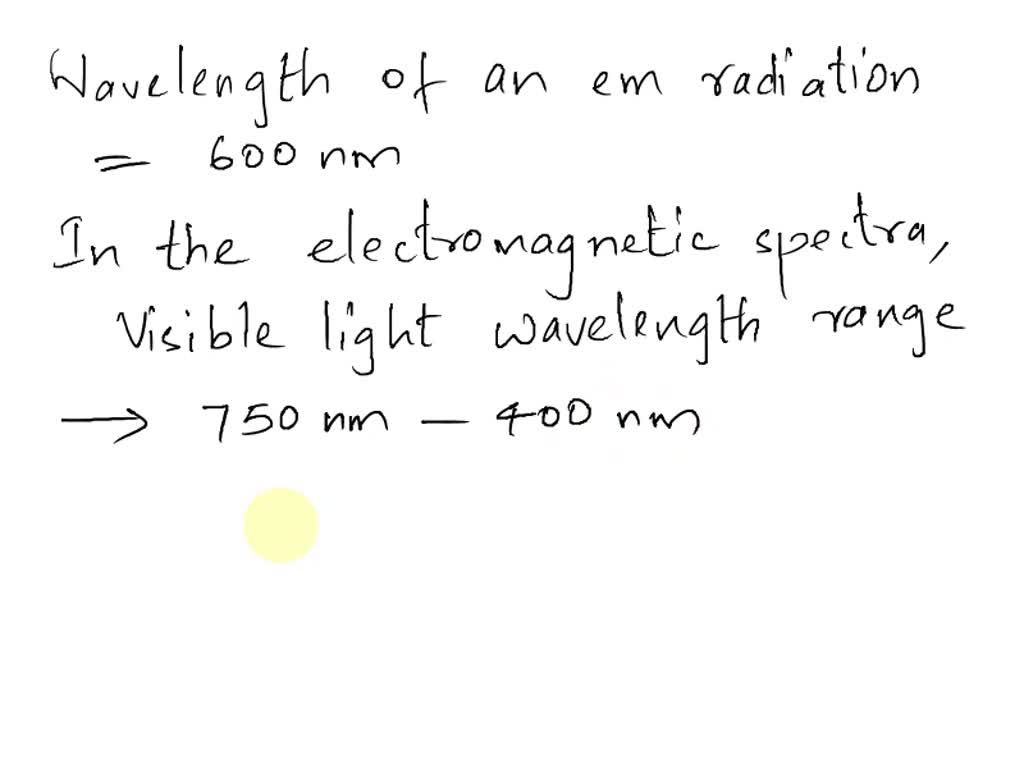 Wavelength of an em radiation
= 600 nm
In the electromagnetic spectra,
Visible light wavelength range
→ 750 nm — 400 nm